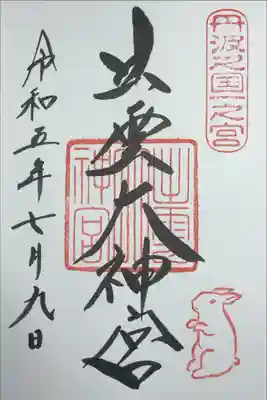 丹波之国一之宮
出雲大神宮
出雲
神宮
令和五年七月九日